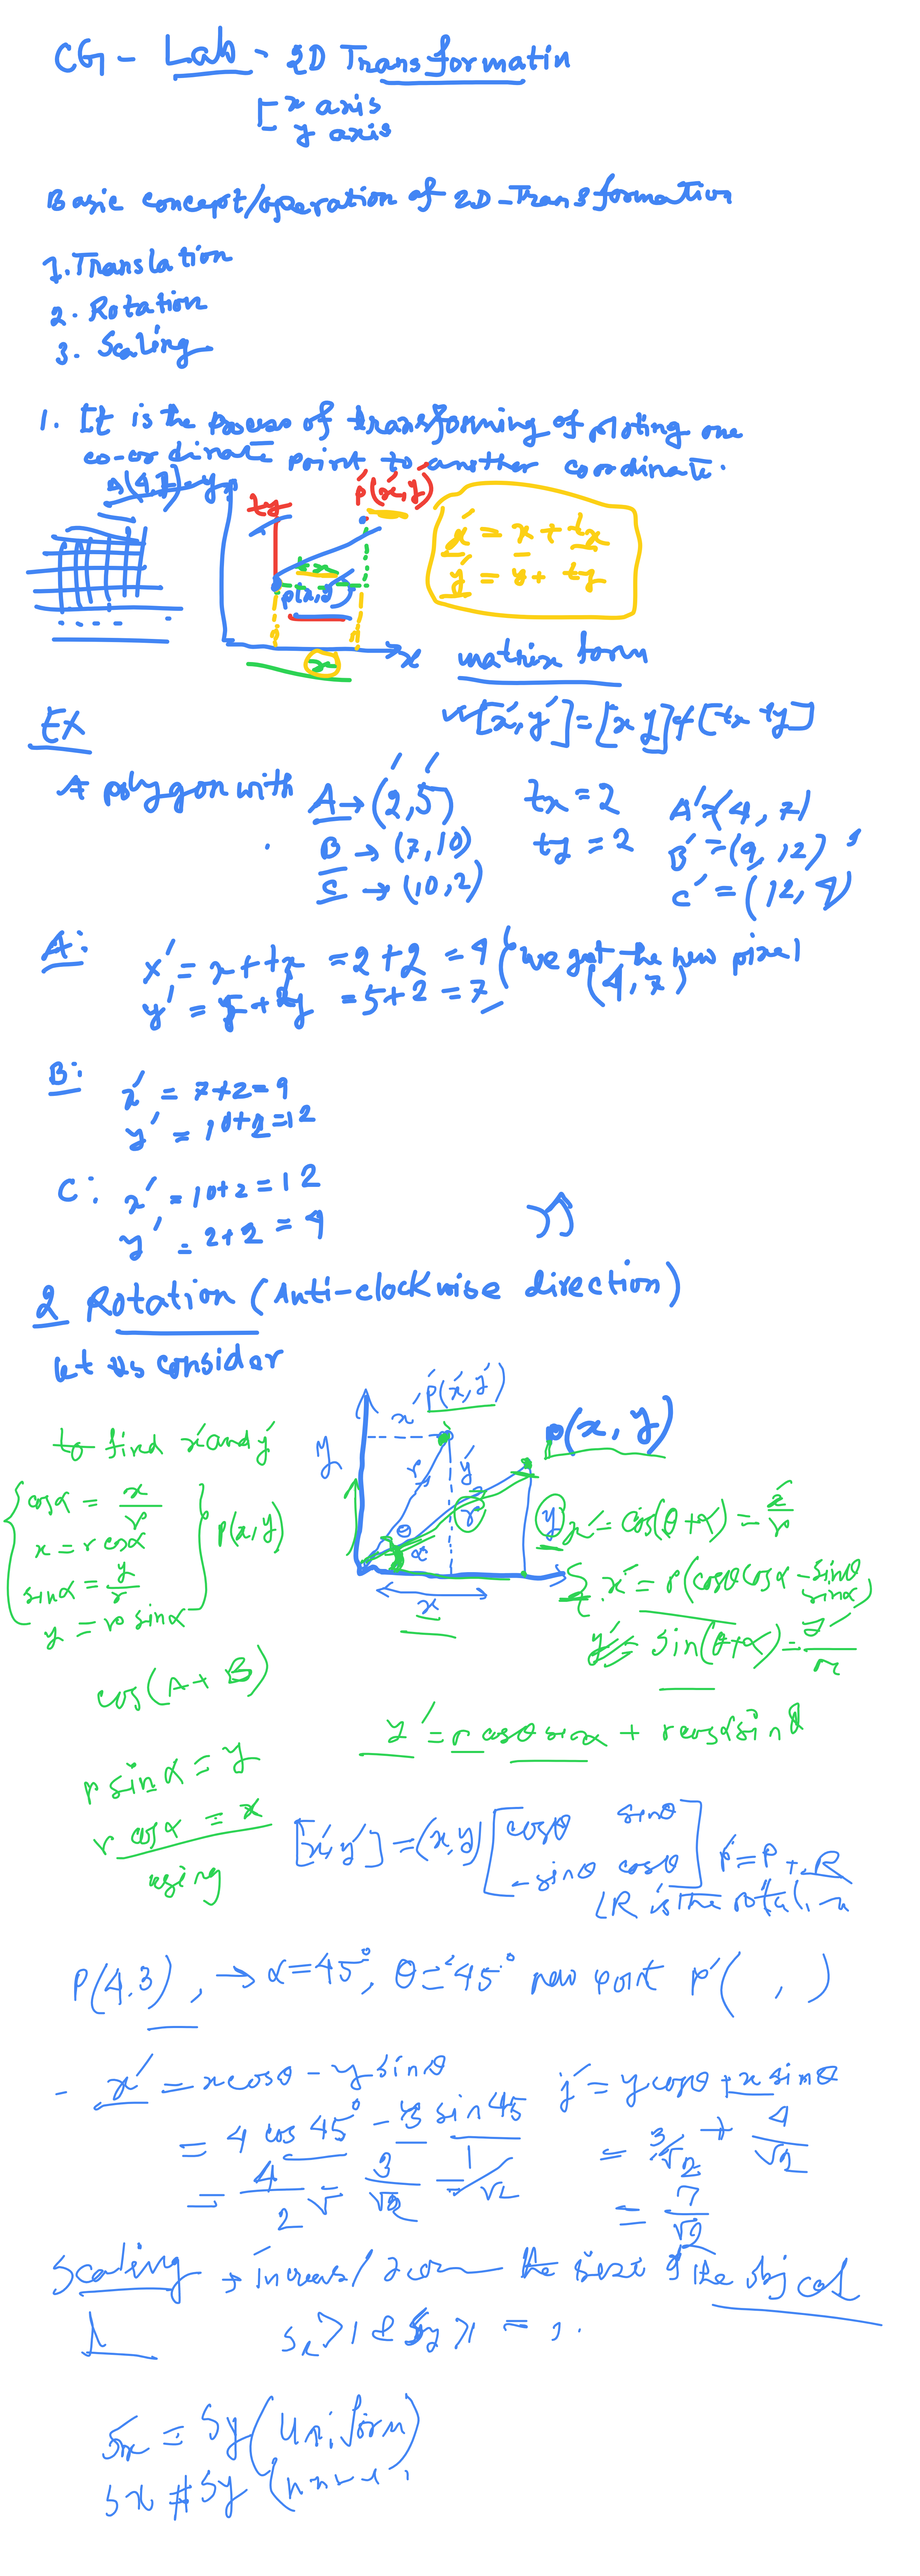 CG - Lab - 2D Transformatin
x axis
y axis
Basic concept/operation of 2D-Transformation
1. Translation
2. Rotation
3. Scaling
1. It is the process of transforming of ploting one
co-ordinate point to another coordinate.
y
ty
p'(x',y')
x' = x + tx
y' = y + ty
tx
p(x,y)
x
x
matrix form
EX
[x', y'] = [x y] + [tx ty]
A polygon with
A → (2,5)
B → (7,10)
C → (10,2)
tx = 2
ty = 2
A' = (4, 7)
B' = (9, 12)
C' = (12, 4)
A:
x' = x + tx = 2+2 = 4 (we get the new pixel
y' = y + ty = 5+2 = 7 (4,7)
B:
x' = 7+2 = 9
y' = 10+2 = 12
C:
x' = 10+2 = 12
y' = 2+2 = 4
2 Rotation (Anti-clockwise direction)
let us consider
p'(x', y')
x'
p(x, y)
y
r
y'
r
y
θ
α
x
to find x' and y'
cosα = x/r
x = r cosα
sinα = y/r
y = r sinα
P(x,y)
x' = cos(θ+α) = x'/r
x' = r(cosθ cosα - sinθ sinα)
y' = sin(θ+α) = y'/r
cos(A+B)
y' = r cosθ sinα + r cosα sinθ
r sinα = y
r cosα = x
using
[x', y'] = (x,y) [cosθ sinθ
-sinθ cosθ]
p' = P + R
R is the
P(4,3), → α=45°, θ=45° new point p'( , )
- x' = x cosθ - y sinθ
= 4 cos 45° - 3 sin 45
= 4/√2 - 3/√2 = 1/√2
y' = y cosθ + x sinθ
= 3/√2 + 4/√2
= 7/√2
Scaling → increas/zoom the size of the object
Sx > 1 & Sy > 1 =
Sx = Sy (uniform)
Sx ≠ Sy